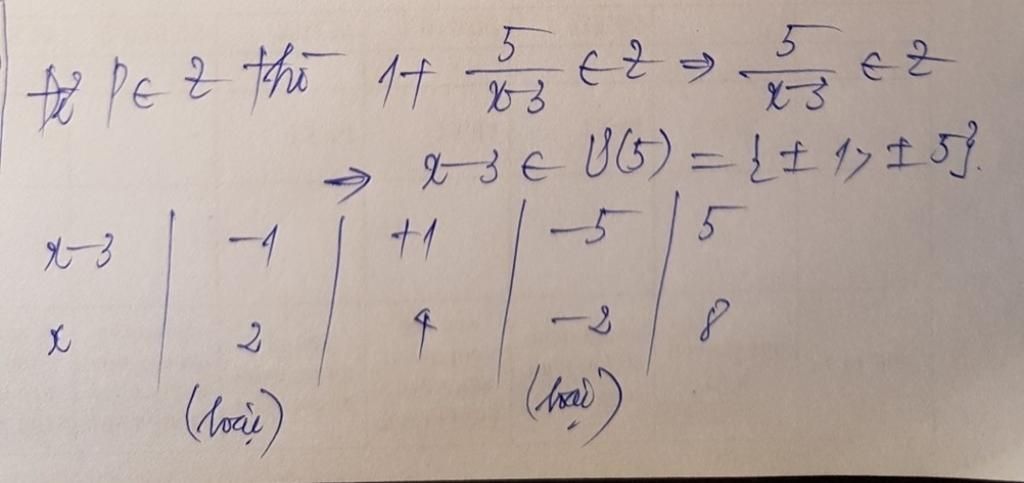 để P ∈ Z thì 1 + 5/(x-3) ∈ Z ⇒ 5/(x-3) ∈ Z
⇒ x-3 ∈ Ư(5) = {± 1; ± 5}.
x-3 | -1 | +1 | -5 | 5
x | 2 | 4 | -2 | 8
(loại) (loại)